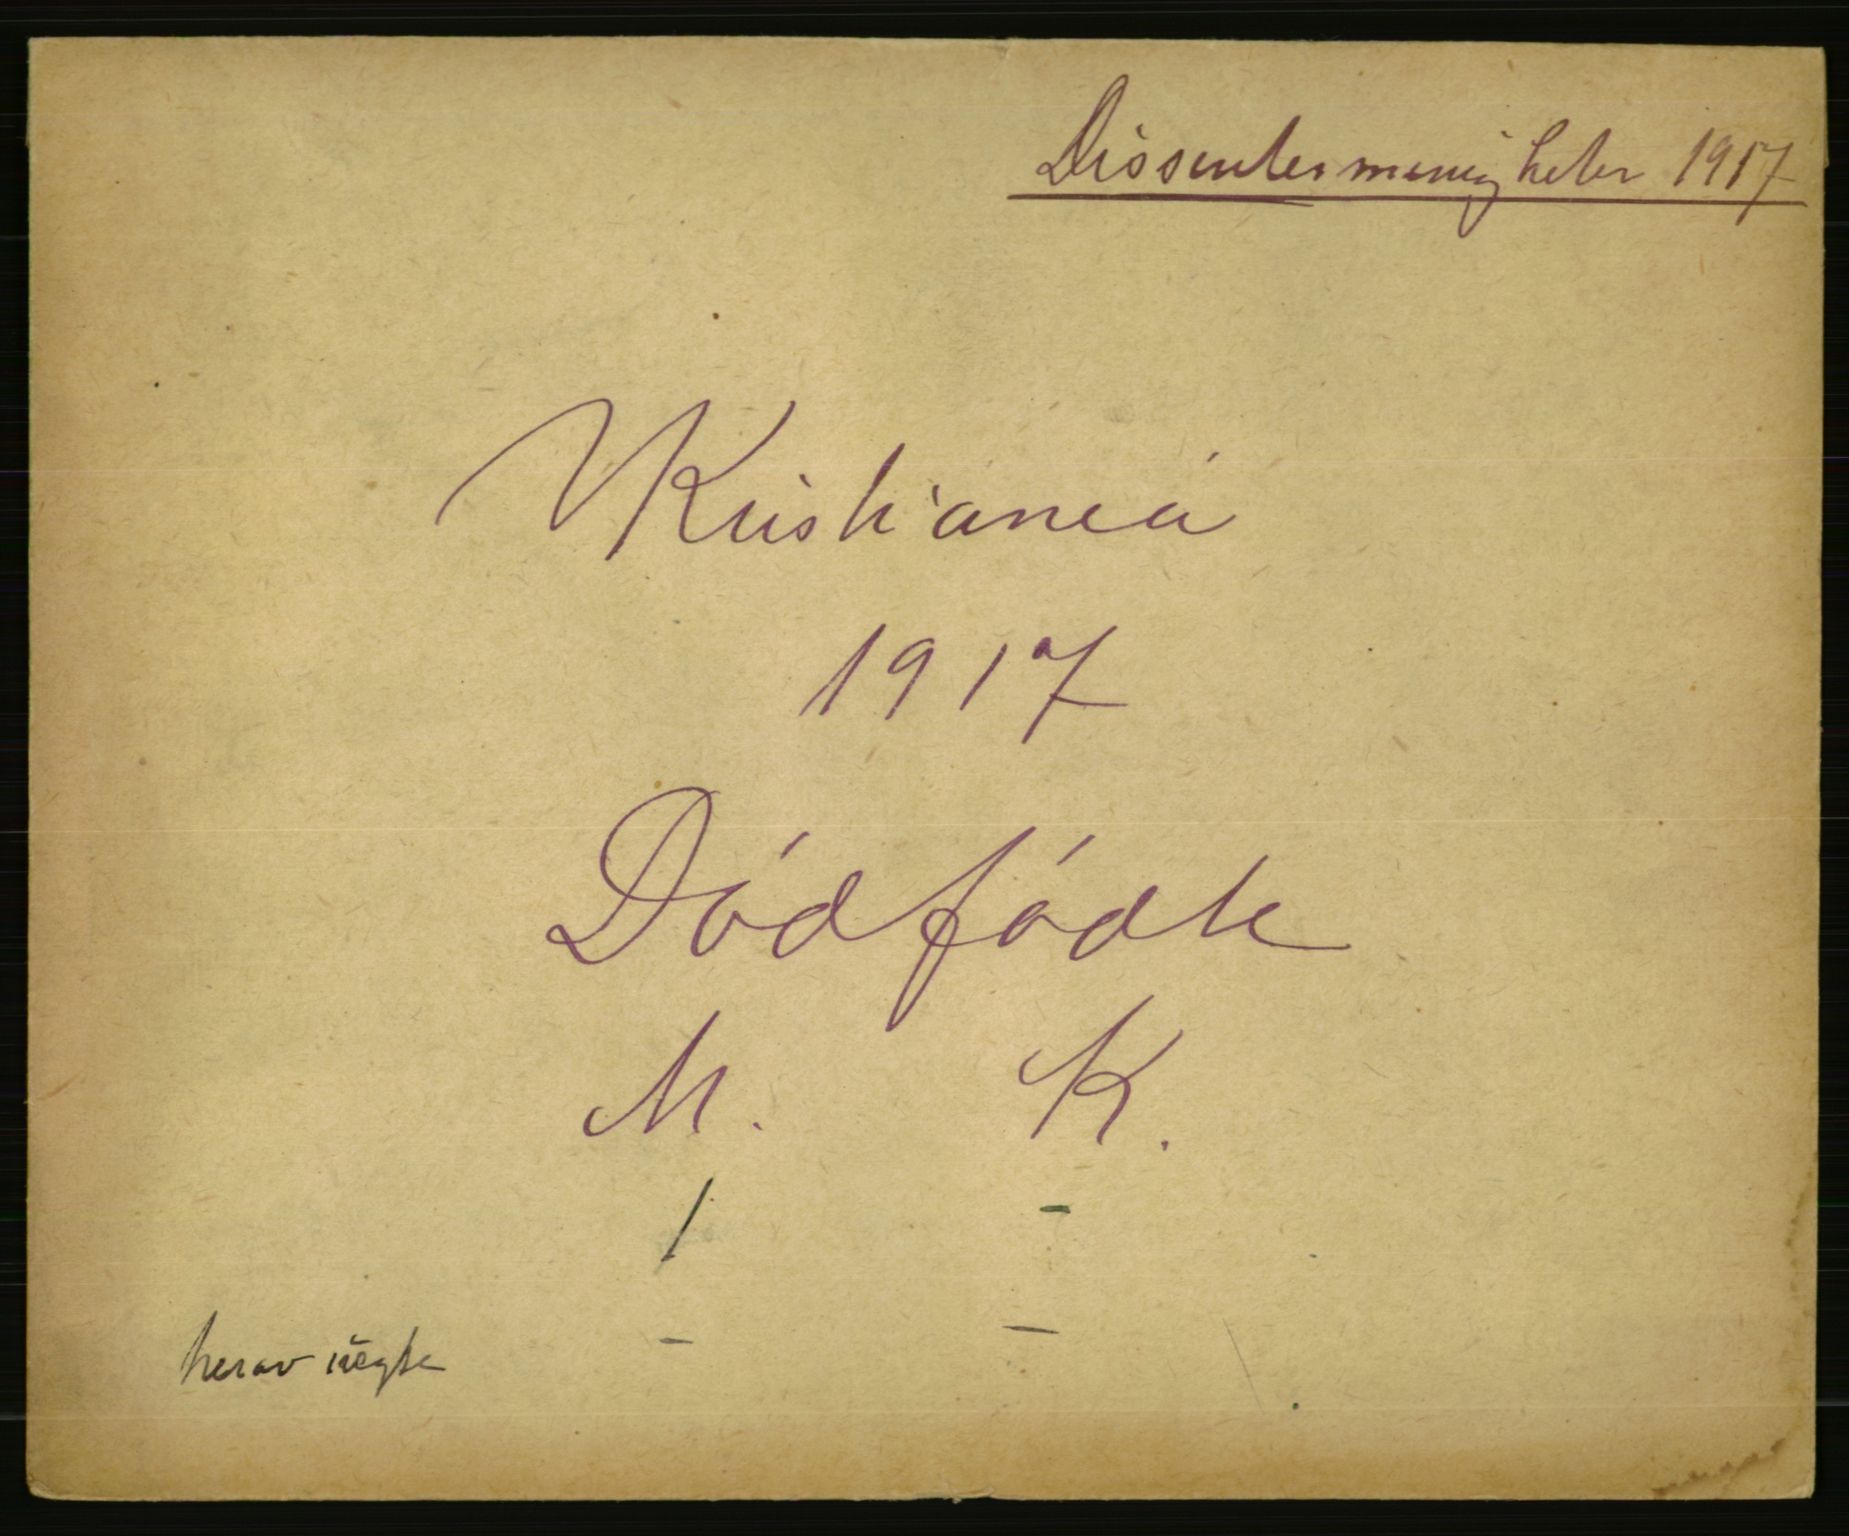 Dissentermenigheter 1917
Kristiania
1917
Dödfödte
M. K.
1 -
herav uegte - -